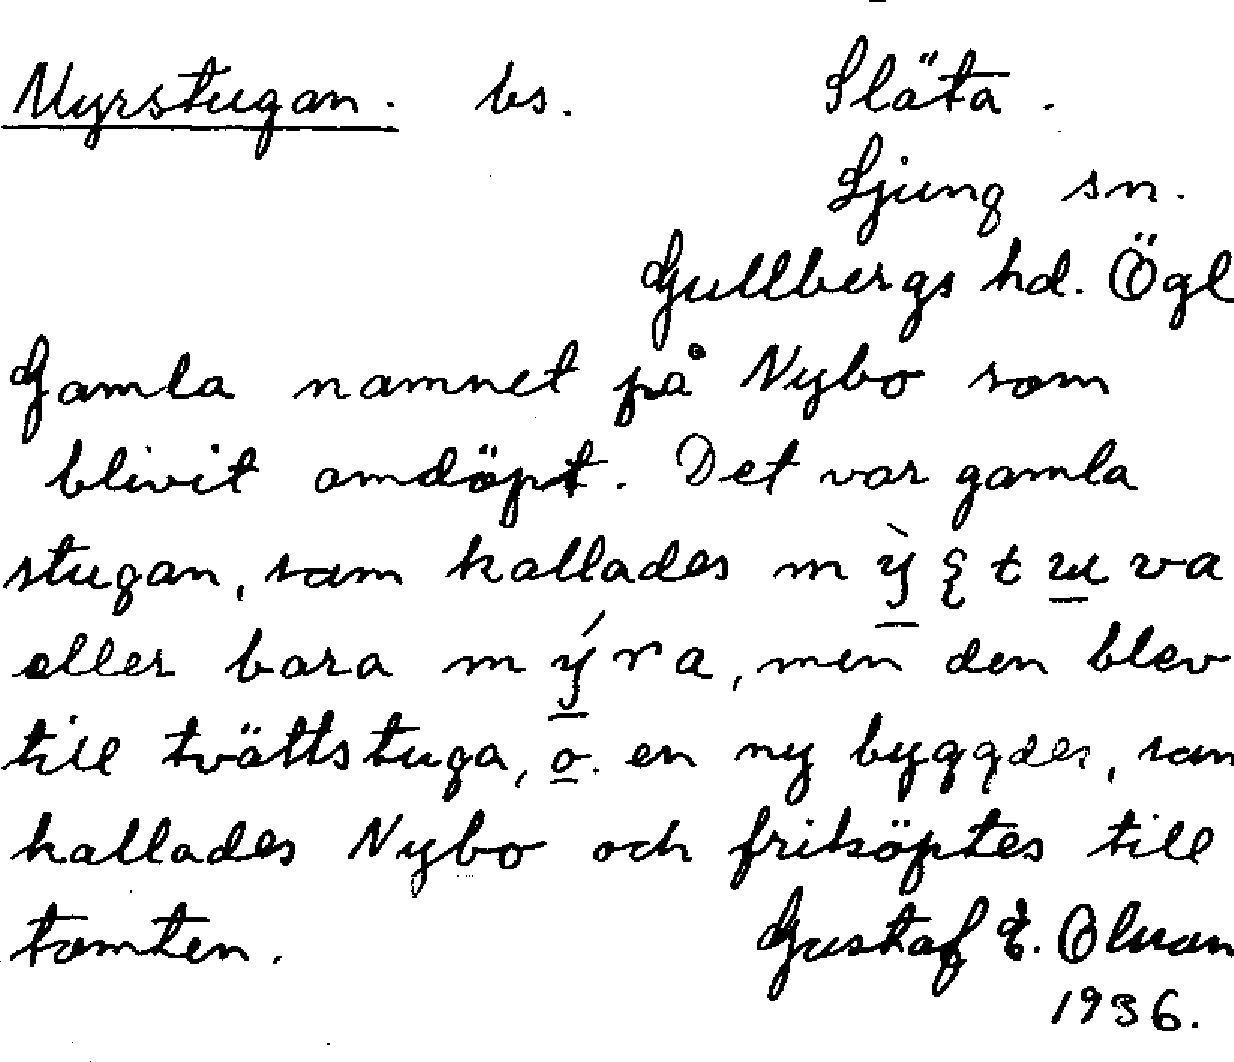 Myrstugan. bs. Släta.
Ljung sn.
Gullbergs hd. Ögl
Gamla namnet på Nybo som
blivit omdöpt. Det var gamla
stugan, som kallades mỳʂtuva
eller bara mýra, men den blev
till tvättstuga, o. en ny byggdes, som
kallades Nybo och friköptes till
tomten. Gustaf E. Olson
1936.